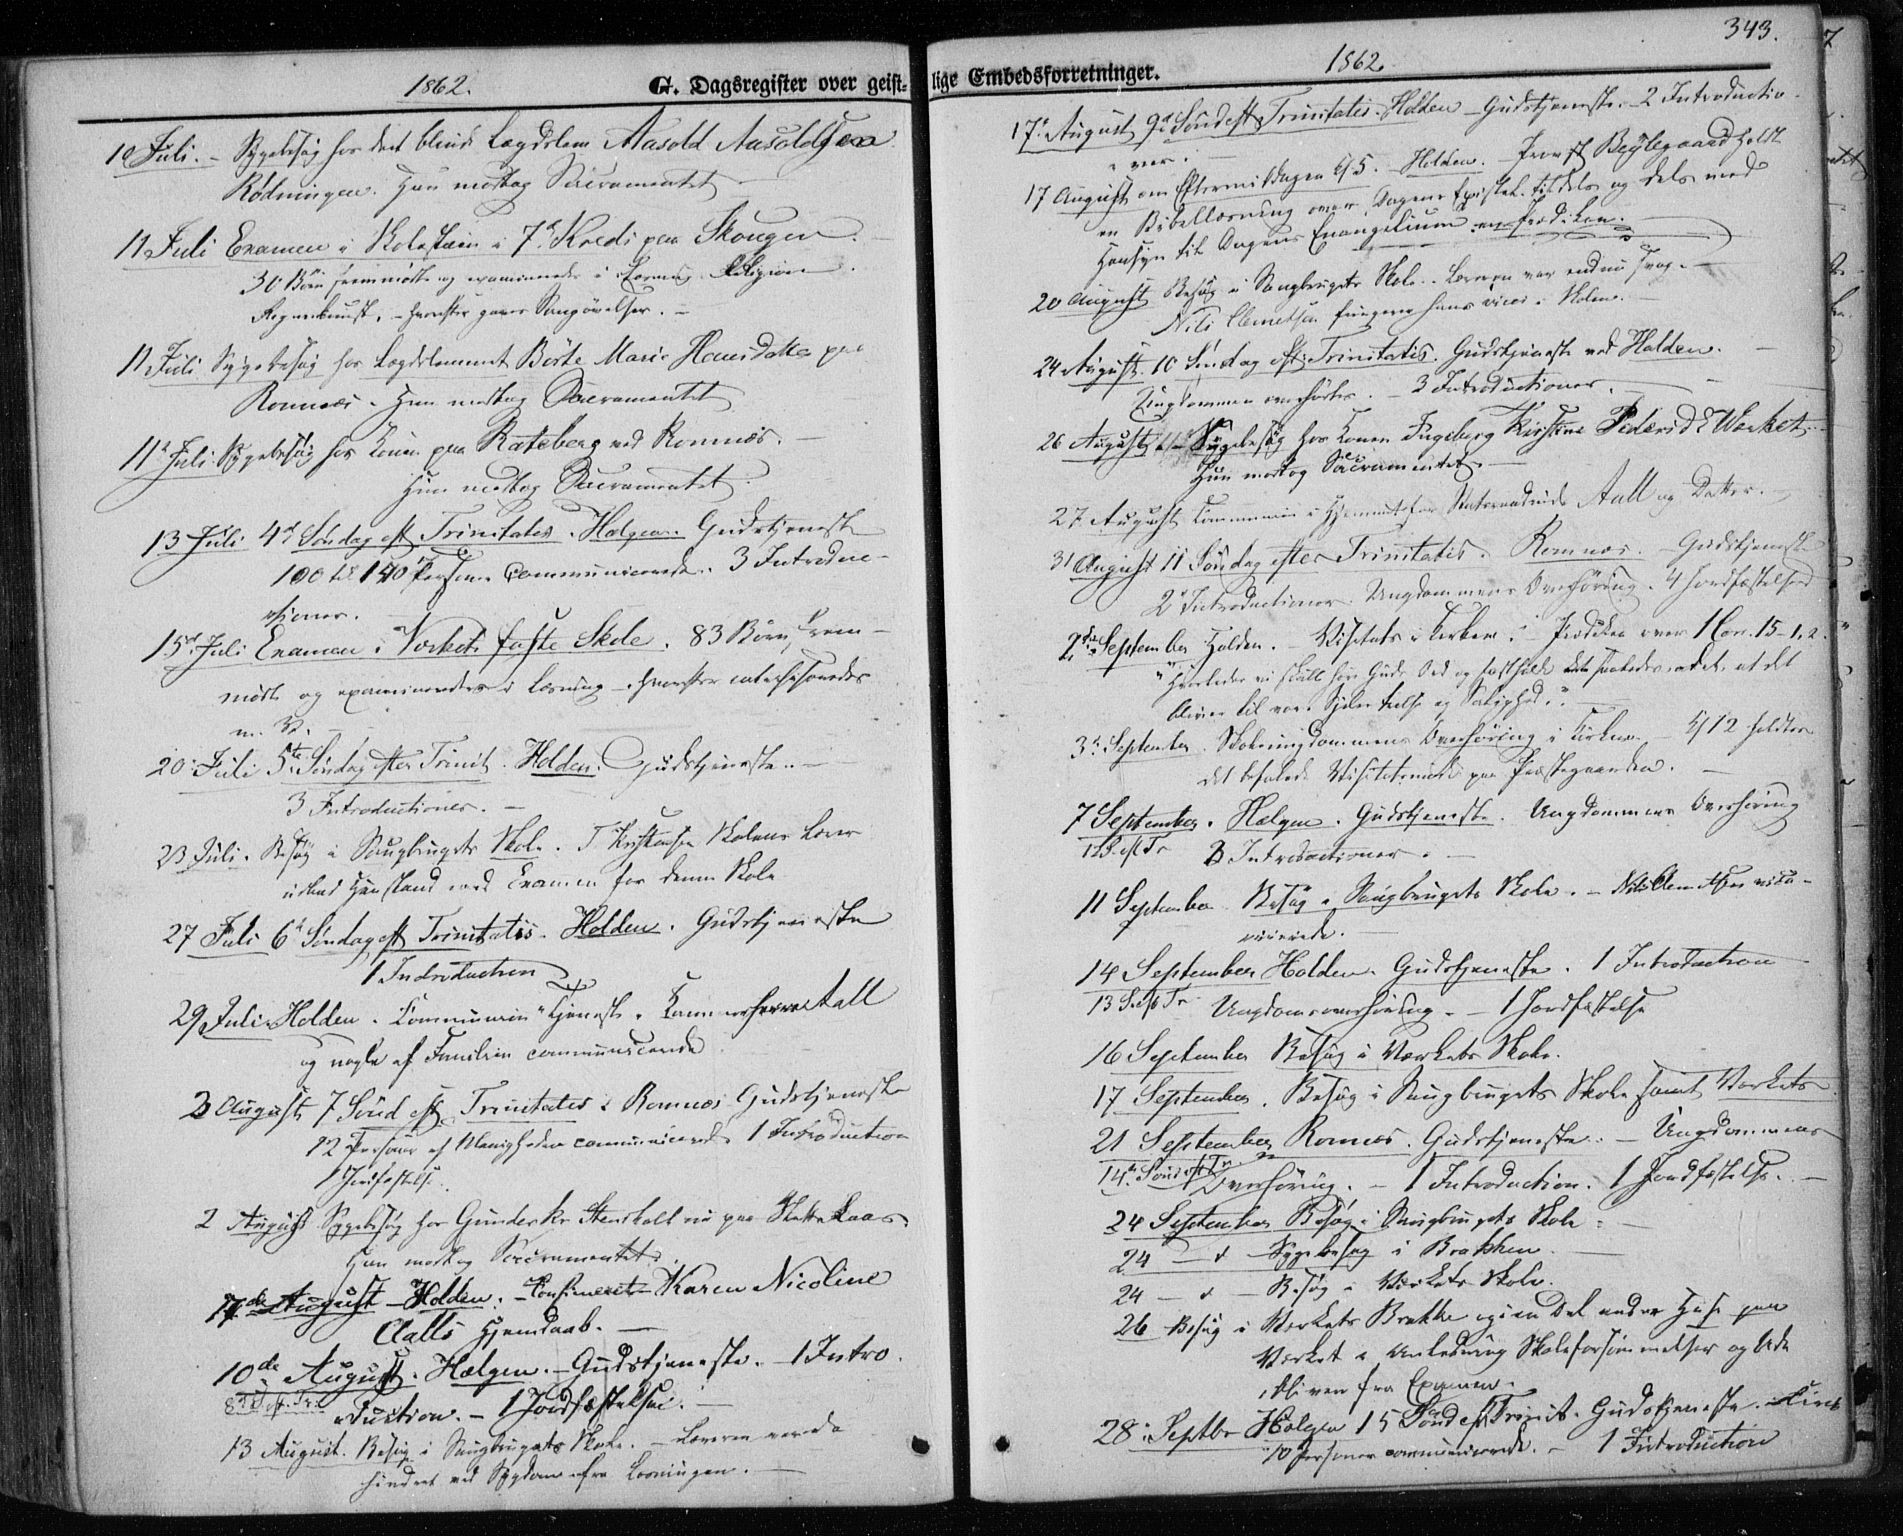 1862. G. Dagsregister over geist-
10 Juli. - Sygebesøg hos det blinde Lægdslem Aasold Aasoldsen
Rødningen. Han modtog Sacramentet
11 Juli Examen i Skolestuen i 7de Kreds paa Skougen.
30 Børn fremmødte og examineredes i Læsning Religion
Regnekunst, - hvorefter gaves Sangøvelser. -
11 Juli Sygebesøg hos Lægdslemmet Børte Marie Hansdatter paa
Romnæs. Hun modtog Sacramentet
11te Juli Sygebesøg hos Konen paa Rateberg ved Romnæs. -
Hun modtog Sacramentet.
13 Juli 4de Søndag eft Trinitatis. Hælgen. Gudstjeneste
100 til 140 Personer communicerede. 3 Introduc-
tioner.
15de Juli Examen i Værkets faste Skole. 83 Børn frem-
mødte og examineredes i Læsning - hvorefter catechiseredes
m. V. -
20 Juli 5te Søndag efter Trinit. Holden. Gudstjeneste. -
3 Introductioner. -
23 Juli. Besøg i Saugbrugets Skole. T Kristensen Skolens Lærer
udbad Henstand med Examen for denne Skole
27 Juli 6te Søndag eft Trinitatis. Holden. Gudstjeneste
1 Introduction
29 Juli. Holden. Communion Tjeneste. Kammerherre Aall
og nogle af Familien communicerede
3 August 7 Sønd eft Trinitatis. Romnæs Gudstjeneste
12 Personer af Menigheden communicerede 1 Introduction
1 Jordfæstelse.
2 August Sygebesøg hos Gunder Kr Stensholt nu paa
Han modtog Sacramentet.
7de August Holden. - Confirmeret Karen Nicoline
Aalls Hjemdaab. -
10de August. Hælgen. - Gudstjeneste. - 1 Intro-
8 S. eft. Tr. duction. - 1 Jordfæstelse. -
13 August. Besøg i Saugbrugets Skole. - Læreren var
hindret ved Sygdom fra Læsningen. -
lige Embedsforretninger. 1862. 343.
17de August 9de Sønd eft Trinitatis. Holden - Gudstjeneste. 2 Introductio-
ner. -
17 August om Eftermiddagen Kl 5. Holden. - Provst Beylegaard holdt
en Bibellæsning over Dagens Epistel tildels og dels med
Hensyn til Dagens Evangelium en Prædiken.
20 August Besøg i Saugbrugets Skole. Læreren var endnu svag. -
Nils Clemetsen fungerer hans vices i Skolen. -
24 August. 10 Søndag eft. Trinitatis. Gudstjeneste ved Holden. -
Ungdommen overhørtes. - 3 Introductioner. -
26 August. - Sygebesøg hos Konen Ingeborg Kirstine Pedersd. Værket. -
Hun modtog Sacramentet. -
27 August Communion i Hjemmet for Statsraadinde Aall og Datter. -
31 August 11 Søndag efter Trinitatis. Romnæs. - Gudstjeneste
2 Introductioner. Ungdommens Overhøring. 4 Jordfæstelser
2den September Holden. - Visitats i Kirken. Prædiken over 1 Cor. 15-1,2.
"Hvorledes vi skulle høre Guds Ord og fastholde det saaledes, at det
bliver til vore Sjeles Frelse og Salighed."
3de September. Skoleungdommens Overhøring i Kirken. - Kl 12 holdtes
det befalede Visitatsmøde paa Præstegaarden. -
7 September. Hælgen. Gudstjeneste. Ungdommens Overhøring
12 S. eft Tr 3 Introductioner. -
11 September Besøg i Saugbrugets Skole. - Nils Clemetsen vica-
rierede. -
14 September Holden. Gudstjeneste. 1 Introduction
13 S. eft Tr. Ungdomsoverhøring. - 1 Jordfæstelse
16 September Besøg i Værkets Skole.
17 September. Besøg i Saugbrugets Skole samt Værkets
21 September Romnæs. Gudstjeneste. - Ungdommens
14de Sønd eft Tr. Overhøring. - 1 Introduction. 1 Jordfæstelse. -
24 September Besøg i Saugbrugets Skole. -
24 - " - Sygebesøg i Brakken. -
24 - " - Besøg i Værkets Skole.
26 Besøg i Værkets Brakke og i en Del andre Huse paa
Værket i Anledning Skoleforsømmelser og Ude
bliven fra Examen.
28. Septbr Hælgen 15 Sønd eft Trinit. Gudstjeneste.
10 Personer communicerede. - 1 Introduction